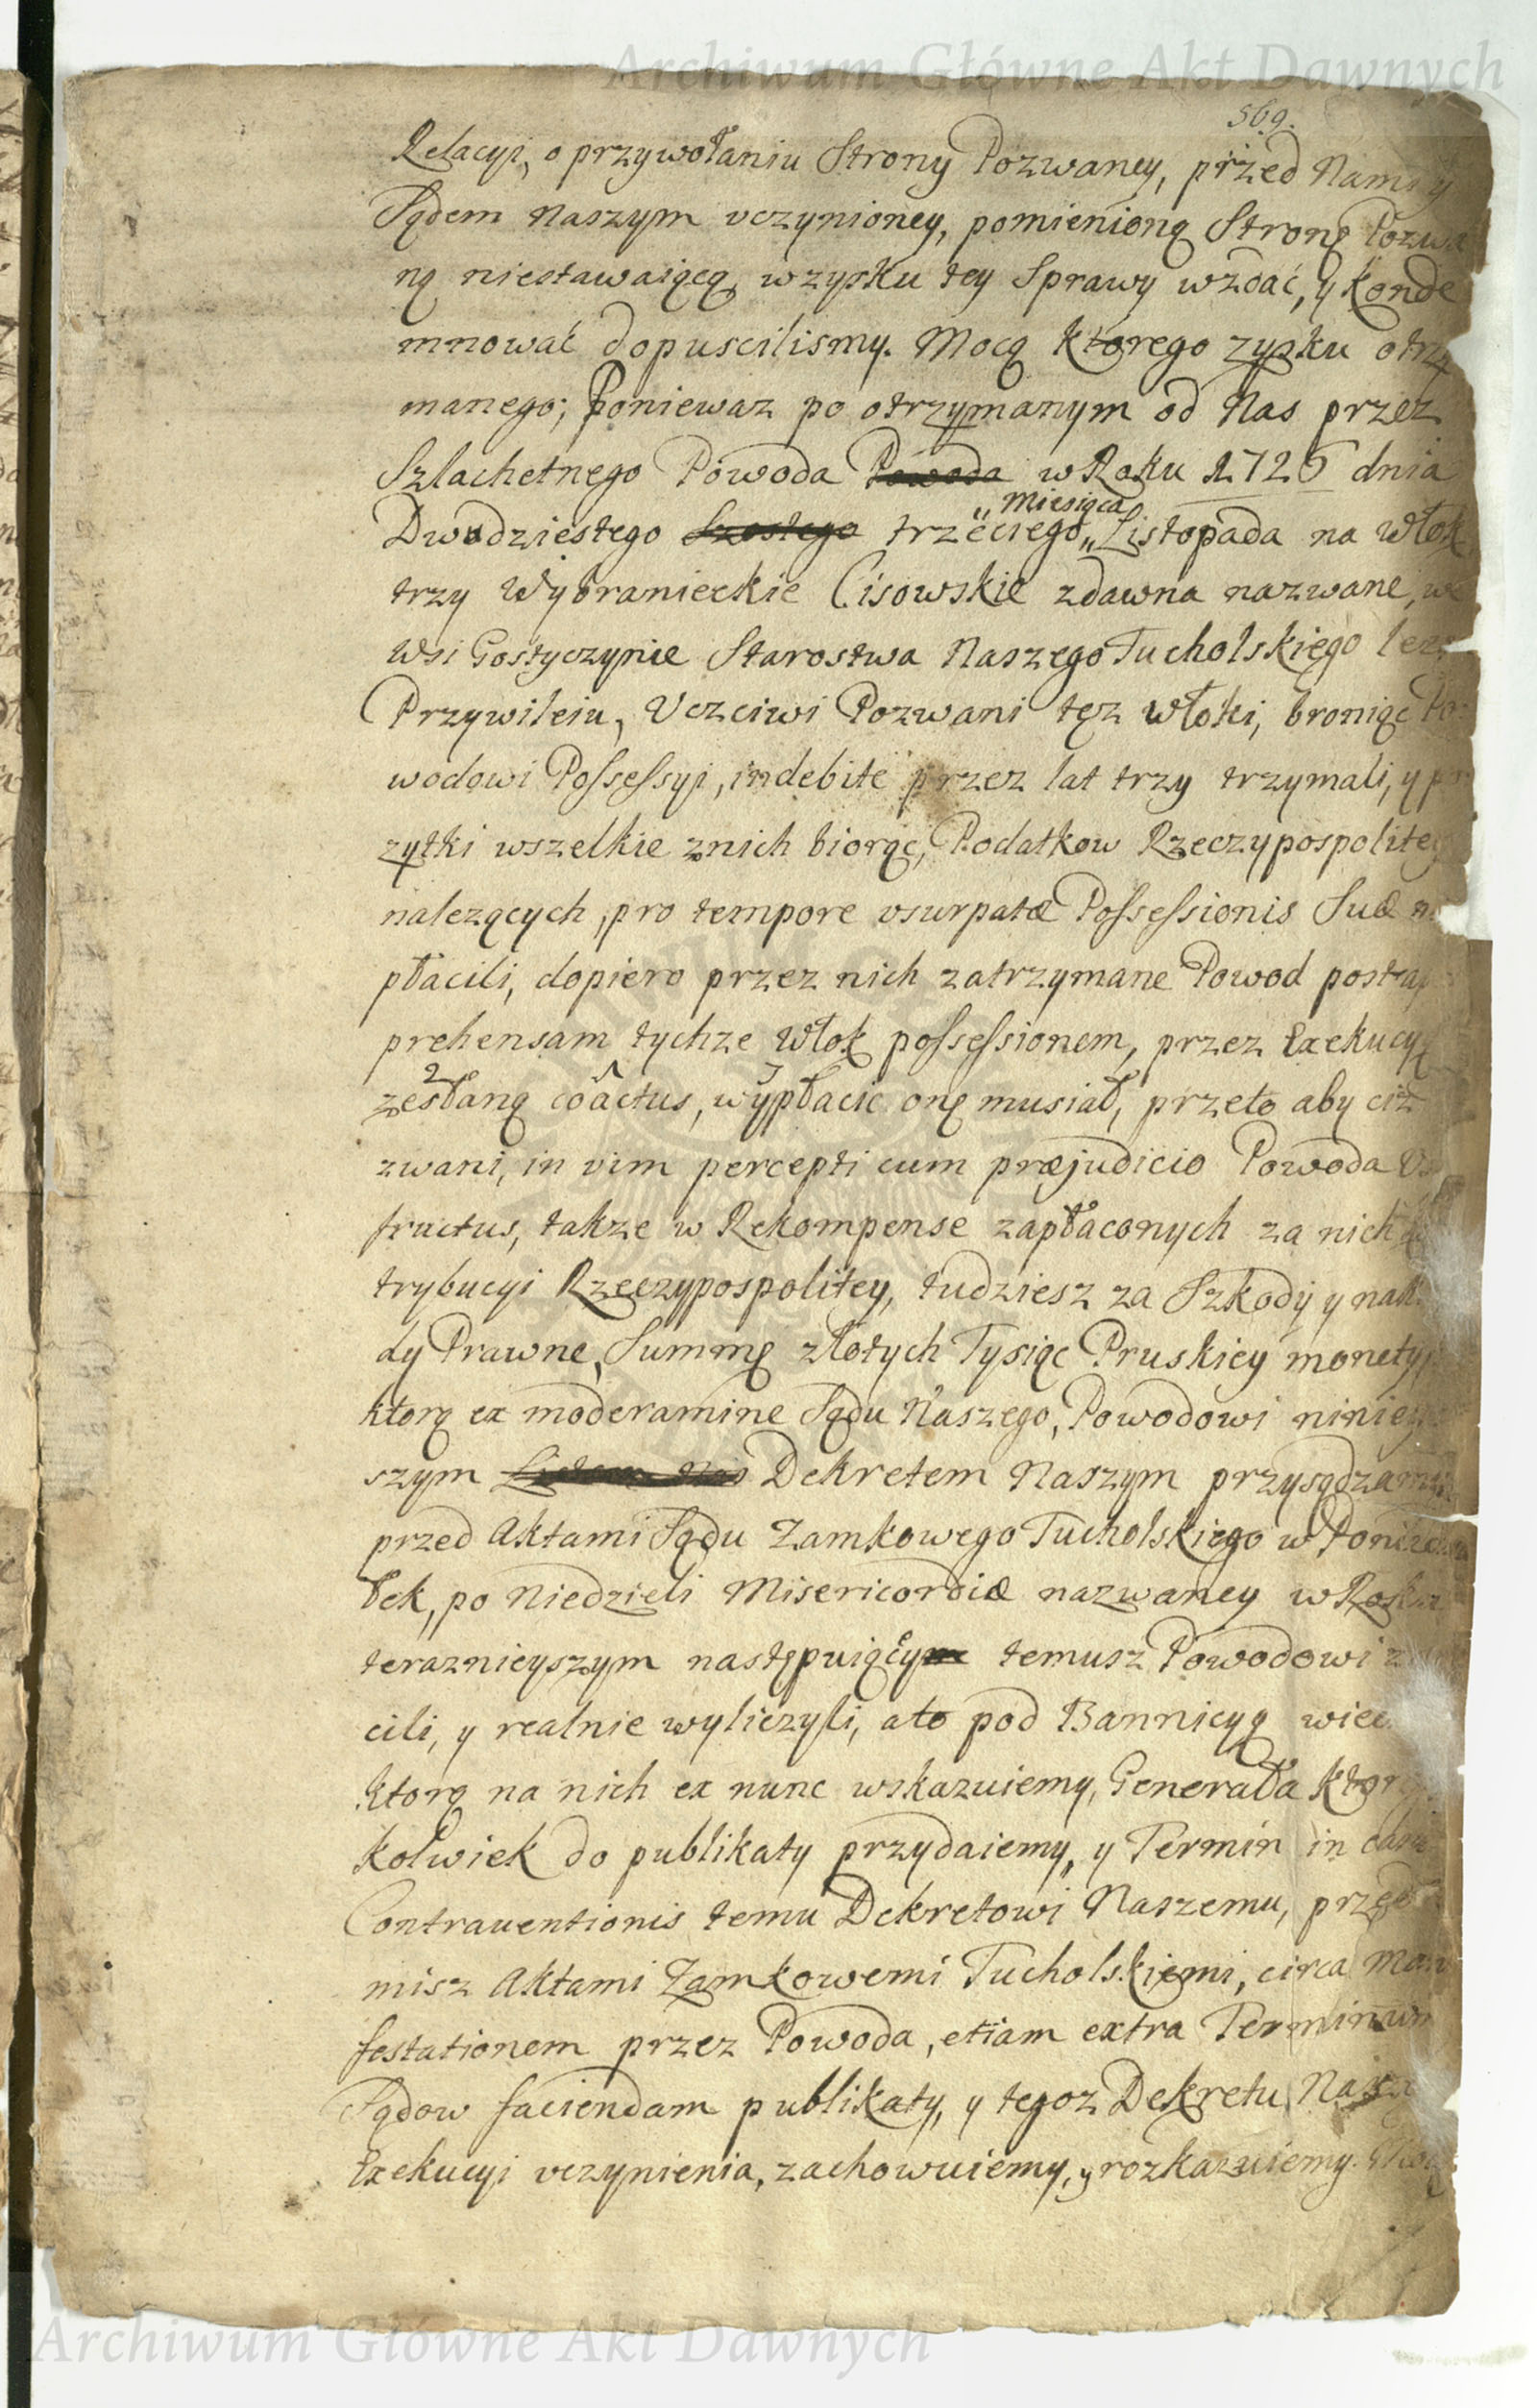 Archiwum Główne Akt Dawnych
569.
Relacyi, o przywołaniu Strony Pozwaney, przed Nami y
Sądem Naszym uczynioney, pomienioną Stronę Pozwa
ną niestawaiącą, wzysku tey Sprawy wzdać, y konde
mnować dopuscilismy. Mocą ktorego zysku otrzy
manego; Poniewaz po otrzymanym od Nas przez
Szlachetnego Powoda Powoda w Roku 1725 dnia
Miesiąca
Dwudziestego Szostego trzeciego Listopada na Włok
trzy Wybranieckie Cisowskie zdawna nazwane, we
Wsi Gostyczynie Starostwa Naszego Tucholskiego lez
Przywileiu, Uczciwi Pozwani tęz Włoki, broniąc Po
wodowi Possessyi, indebite przez lat trzy trzymali, y po
zytki wszelkie znich biorąc, Podatkow Rzeczypospolitey
nalezących, pro tempore usurpatæ Possessionis Suæ
płacili, dopiero przez nich zatrzymane Powod post ap
prehensam tychze Włok possessionem, przez Exekucyą
zesłaną coactus, wypłacic onę musiał, przeto aby ciz
zwani, in vim percepti cum præjudicio Powoda Us
fructus, takze w Rekompense zapłaconych za nich
trybucyi Rzeczypospolitey, tudziesz za Szkody y nak
dy Prawne, Summę złotych Tysiąc Pruskiey monety
ktorą ex moderamine Sądu Naszego, Powodowi niniey
szym Dekretem Naszym przysądzamy
przed Aktami Sądu Zamkowego Tucholskiego w Poniedzia
łek, po Niedzieli Misericordiæ nazwaney w Roku
teraznieyszym następuiący temusz Powodowi
cili, y realnie wyliczyli, a to pod Bannicyą wiec
ktorą na nich ex nunc wskazuiemy, Generała ktore
kolwiek do publikaty przydaiemy, y Termin in casu
Contraventionis temu Dekretowi Naszemu, przed
misz Aktami Zamkowemi Tucholskiemi, circa Mani
festationem przez Powoda, etiam extra Terminum
Sądow faciendam publikaty, y tegoz Dekretu Nasze
Exekucyi uczynienia, zachowuiemy, y rozkazuiemy.
Archiwum Główne Akt Dawnych